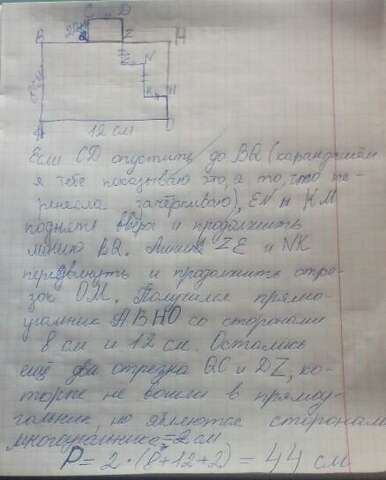 C D
B Z H
E N
K M
A 12 см O
Если CD опустить до BQ (карандашом
я тебе показываю это, а то, что пе-
ренесла зачеркиваю), EN и KM
поднять вверх и продолжить
линию BQ. Линии ZE и NK
передвинуть и продолжить отре-
зок OM. Получился прямо-
угольник ABHO со сторонами
8 см и 12 см. Остались
ещё два отрезка QC и DZ, ко-
торые не вошли в прямоу-
гольник, но являются сторонами
многоугольника = 2 см
P = 2 · (8+12+2) = 44 см